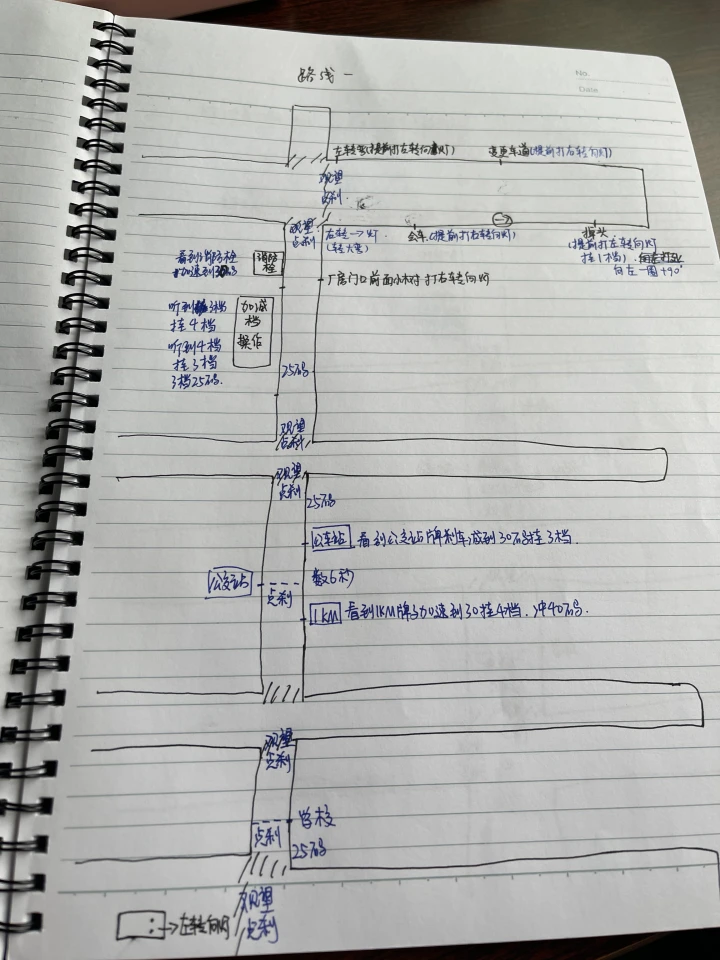 路线一
No.
Date
左转弯(提前打左转向灯)
变更车道(提前打右转向灯)
观望
点刹
观望
点刹
右转→灯
(转大弯)
会车(提前打右转向灯)
掉头
(提前打左转向灯
挂1档)
向左一圈+90°
看到消防栓
加速到30码
消防
栓
厂房门口前面小木对 打右转向灯
听到3档
挂4档
听到4档
挂3档
3档25码.
加减
档
操作
25码
观望
点刹
观望
点刹
25码
公车站 看到公交站牌刹车减到30码挂3档.
数6秒
公交站
点刹
1KM 看到1KM牌子加速到30挂4档.冲40码.
观望
点刹
学校
点刹
25码
观望
点刹
→左转向灯